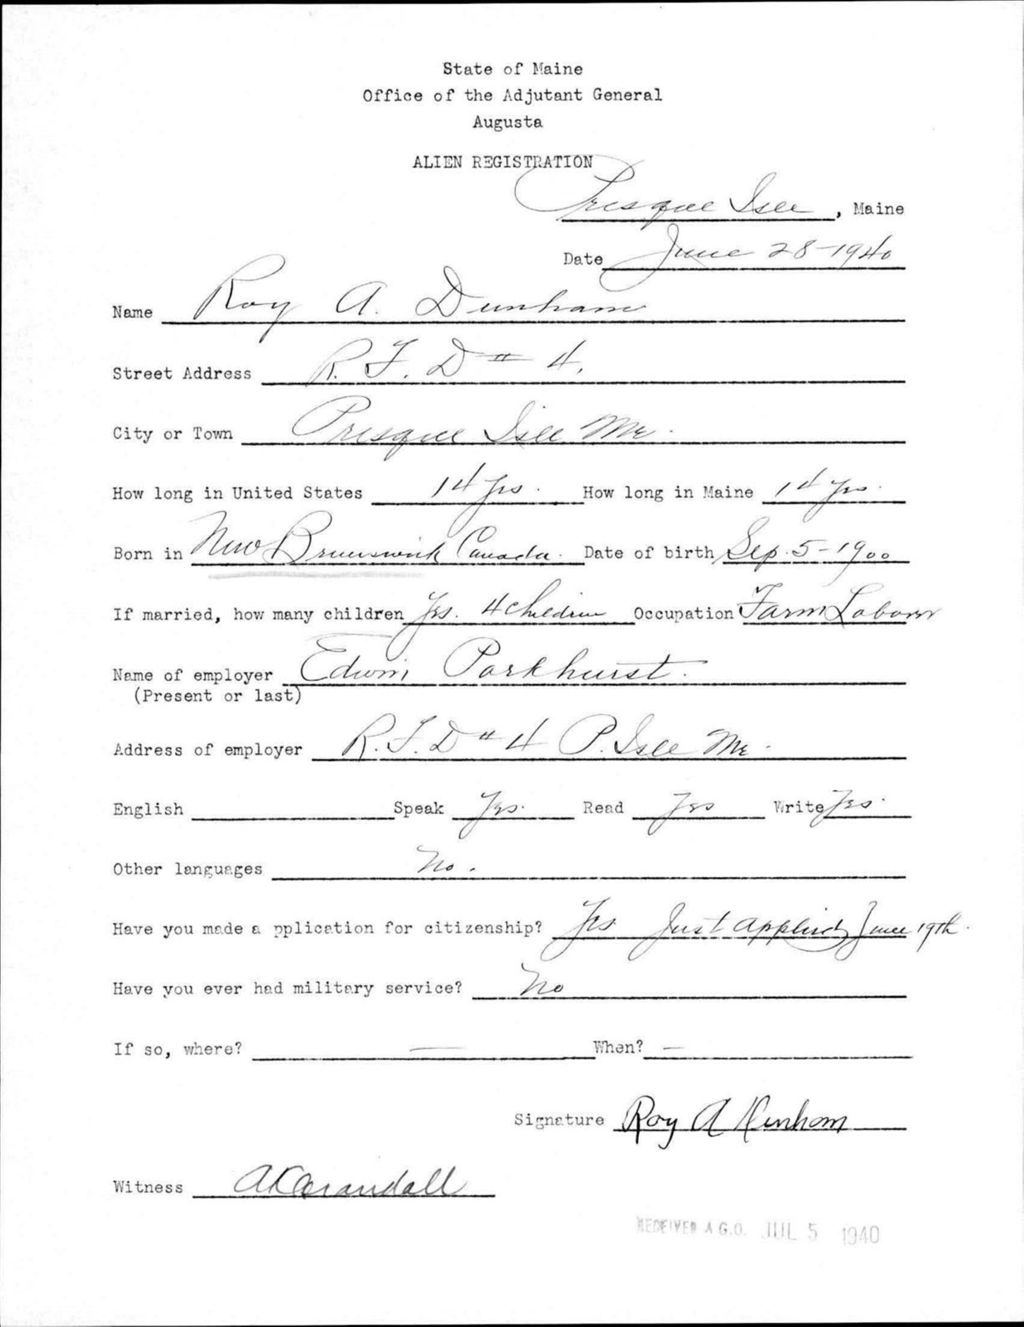 State of Maine
Office of the Adjutant General
Augusta
ALIEN REGISTRATION
Presque Isle, Maine
Date June 28-1940
Name Roy A. Dunham
Street Address R.F.D # 4.
City or Town Presque Isle Me.
How long in United States 14 yrs. How long in Maine 14 yrs.
Born in New Brunswick Canada. Date of birth Sep. 5-1900
If married, how many children Yes. 4 children Occupation Farm Laborer
Name of employer Edwin Parkhurst.
(Present or last)
Address of employer R.F.D # 4 P. Isle Me.
English Speak Yes. Read Yes Write Yes.
Other languages No.
Have you made a pplication for citizenship? Yes Just applied June 19th.
Have you ever had military service? No
If so, where? — When? —
Signature Roy A Dunham
Witness A K Crandall
RECEIVED A.G.O. JUL 5 1940